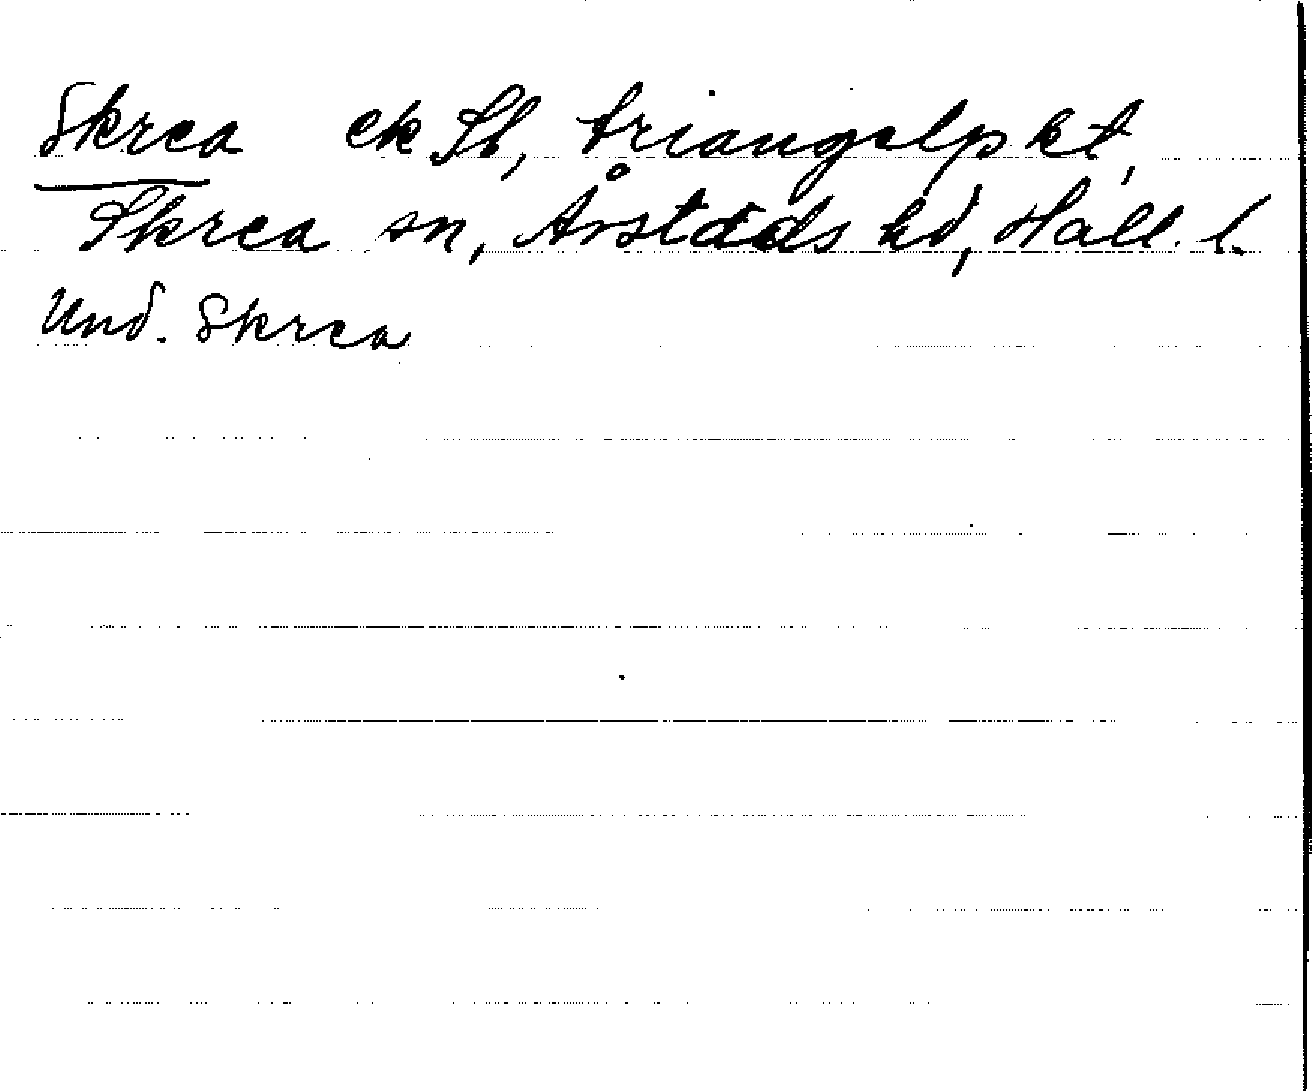 Skrea ek Sb, triangelpkt,
Skrea sn, Årstads hd, Hall. l.
Und. Skrea